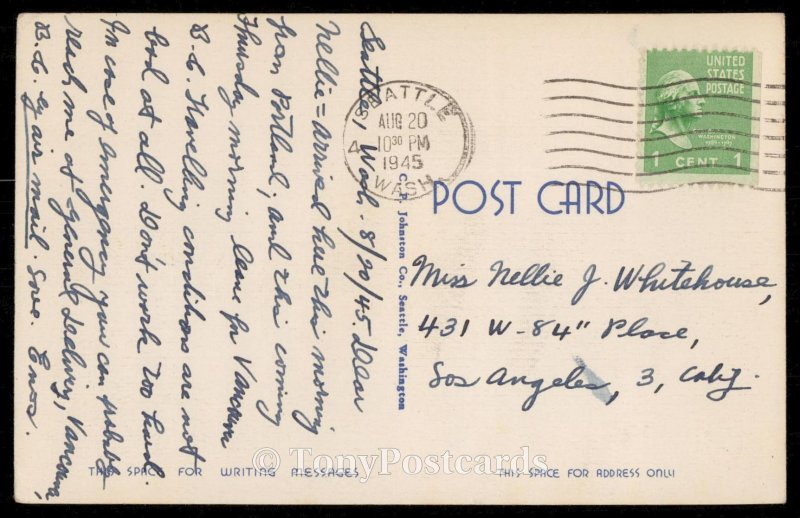 Seattle, Wash. 8/20/45. Dear
Nellie = Arrived here this morning
from Portland, and this coming
Thursday morning leave for Vancouver
B.C. Travelling conditions are not
bad at all. Don't work too hard.
In case of emergency you can
reach me at General Delivery, Vancouver,
B.C. by air mail. Love. Enos.
SEATTLE
AUG 20
10 30 PM
1945
WASH.
UNITED
STATES
POSTAGE
WASHINGTON
1 CENT 1
C. P. Johnston Co., Seattle, Washington
POST CARD
Miss Nellie J. Whitehouse,
431 W-84" Place,
Los Angeles, 3, Calif.
© TonyPostcards
THIS SPACE FOR WRITING MESSAGES
THIS SPACE FOR ADDRESS ONLY